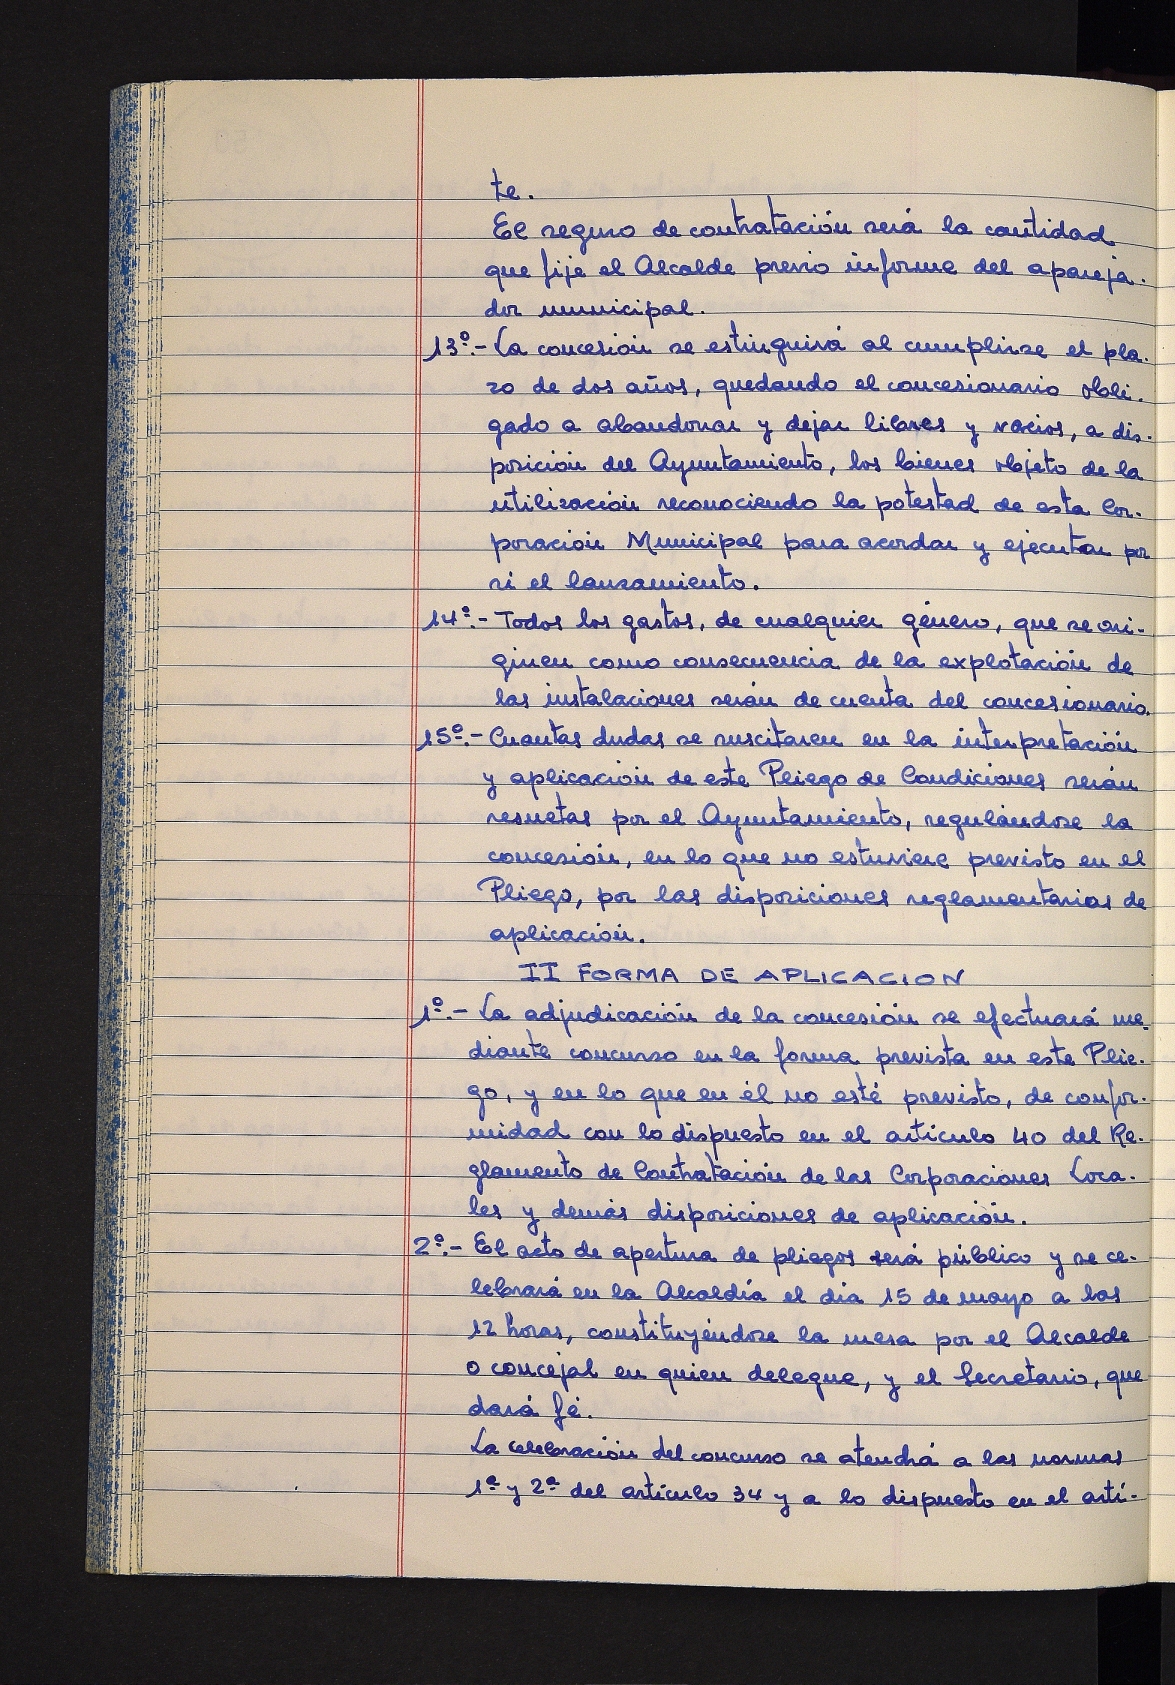 te.
El seguro de contratación será la cantidad
que fije el Alcalde previo informe del apareja-
dor municipal.
13º.- La concesión se estinguirá al cumplirse el pla-
zo de dos años, quedando el concesionario obli-
gado a abandonar y dejar libres y vacios, a dis-
posición del Ayuntamiento, los bienes objeto de la
utilización reconociendo la potestad de esta Cor-
poración Municipal para acordar y ejecutar por
sí el lanzamiento.
14º.- Todos los gastos, de cualquier género, que se ori-
ginen como consecuencia de la explotación de
las instalaciones serán de cuenta del concesionario.
15º.- Cuantas dudas se suscitaren en la interpretación
y aplicación de este Pliego de Condiciones serán
resuetas por el Ayuntamiento, regulándose la
concesión, en lo que no estuviere previsto en el
Pliego, por las disposiciones reglamentarias de
aplicación.
II FORMA DE APLICACION
1º.- La adjudicación de la concesión se efectuará me-
diante concurso en la forma prevista en este Plie-
go, y en lo que en él no esté previsto, de confor-
midad con lo dispuesto en el articulo 40 del Re-
glamento de Contratación de las Corporaciones Loca-
les y demás disposiciones de aplicación.
2º.- El acto de apertura de pliegos será público y se ce-
lebrará en la Alcaldía el día 15 de mayo a las
12 horas, constituyéndose la mesa por el Alcalde
o concejal en quien delegue, y el Secretario, que
dará fé.
La celebración del concurso se atendrá a las normas
1ª y 2ª del artículo 34 y a lo dispuesto en el artí-